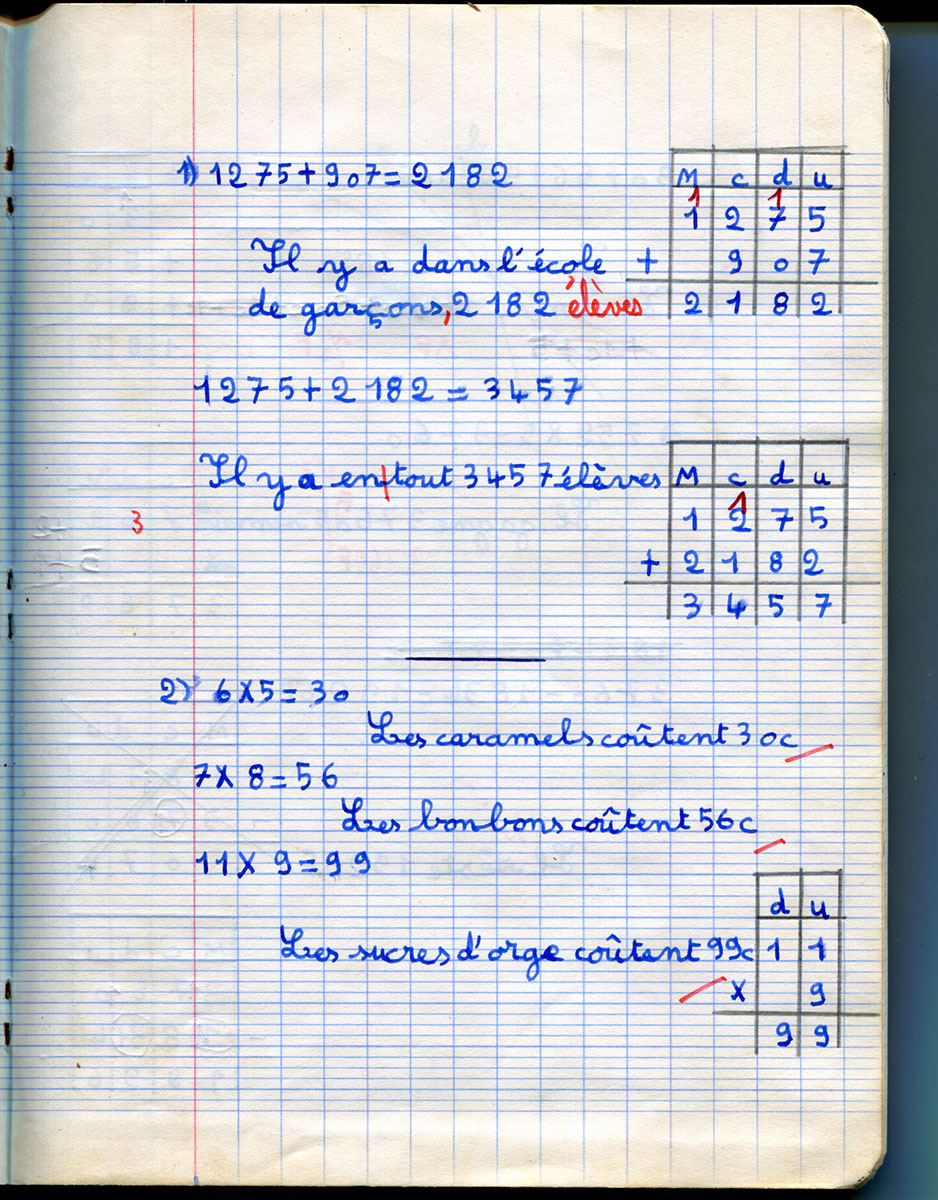 1) 1275+907=2182
M c d u
1 1
1 2 7 5
Il y a dans l'école
+ 9 0 7
de garçons, 2182 élèves
2 1 8 2
1275+2182=3457
Il y a en|tout 3457 élèves
M c d u
1
3
1 2 7 5
+ 2 1 8 2
3 4 5 7
2) 6x5=30
Les caramels coûtent 30c
7x8=56
Les bonbons coûtent 56c
11x9=99
d u
Les sucres d'orge coûtent 99c
1 1
x 9
9 9